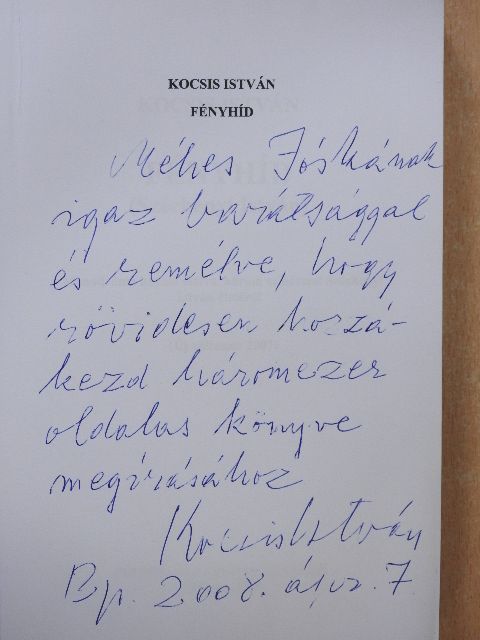 KOCSIS ISTVÁN
FÉNYHÍD
Méhes Jóskának
igaz barátsággal
és remélve, hogy
rövidesen hozzá-
kezd háromezer
oldalas könyve
megírásához
Kocsis István
Bp. 2008. 7.